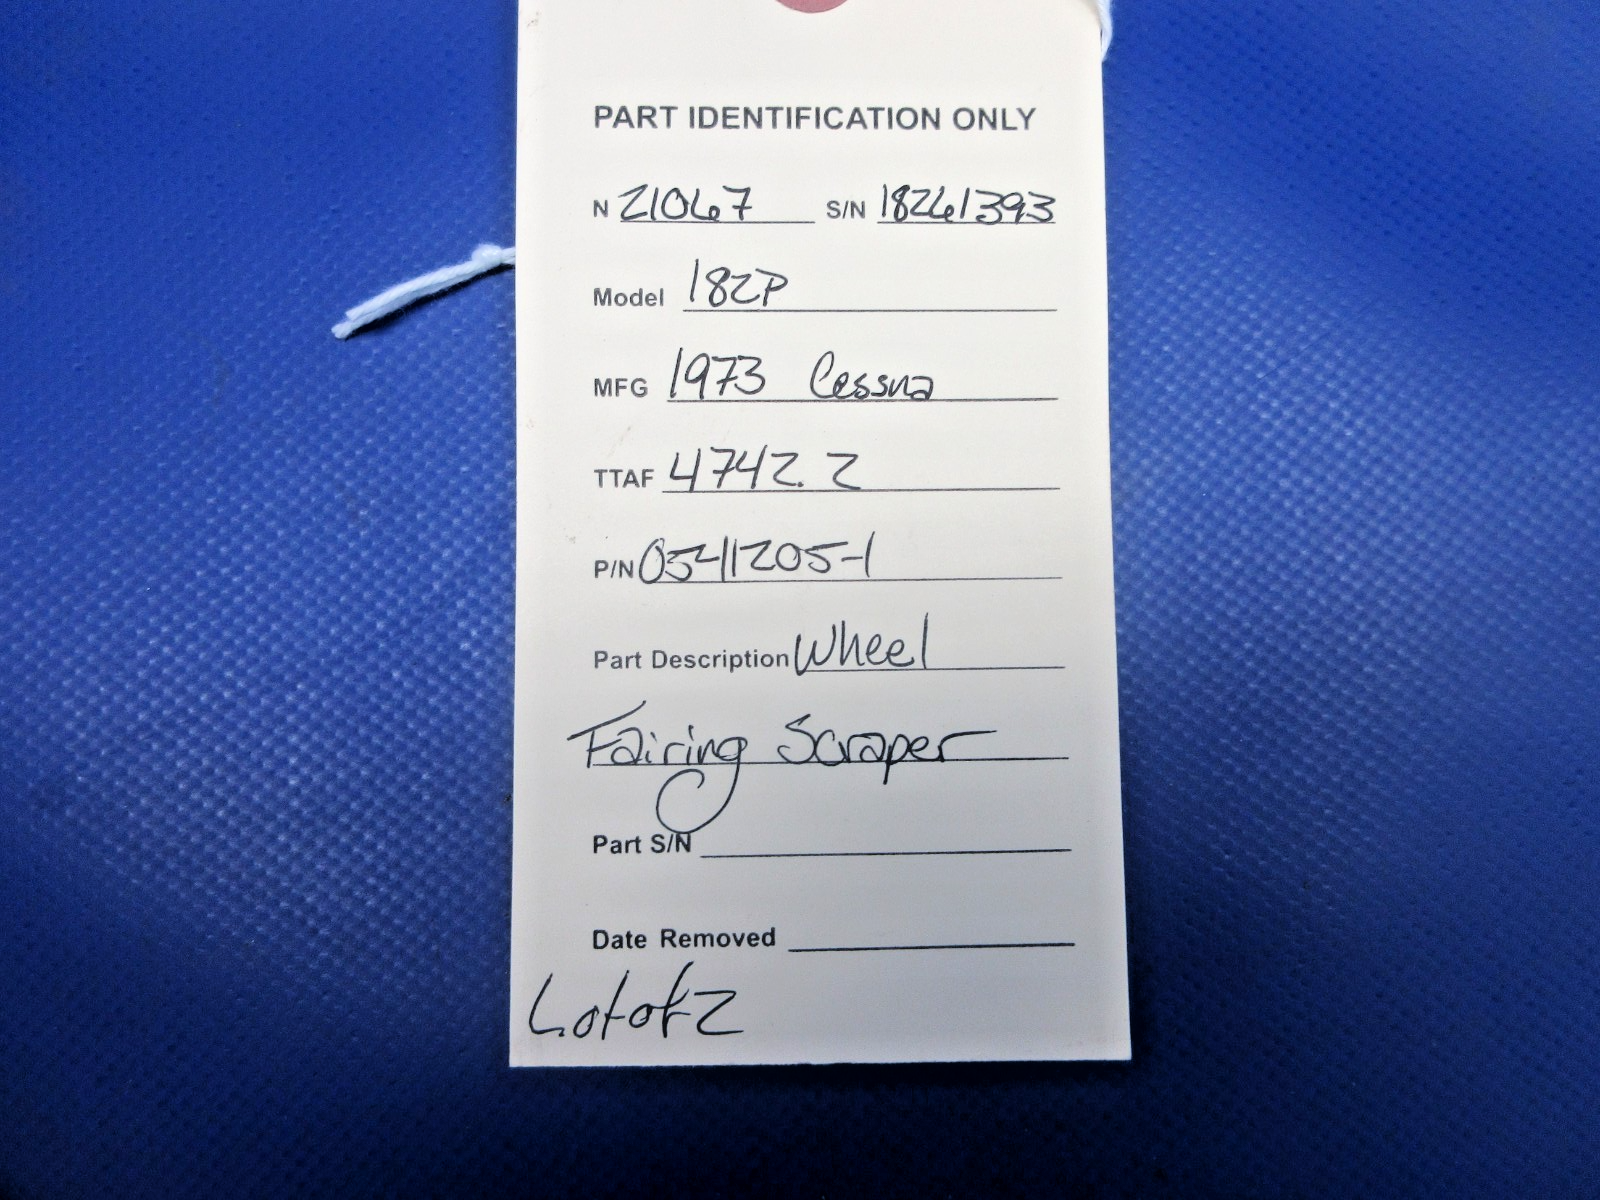 PART IDENTIFICATION ONLY
N 21067 S/N 18261393
Model 182P
MFG 1973 Cessna
TTAF 4742.2
P/N 0541205-1
Part Description Wheel
Fairing Scraper
Part S/N
Date Removed
Lot of 2